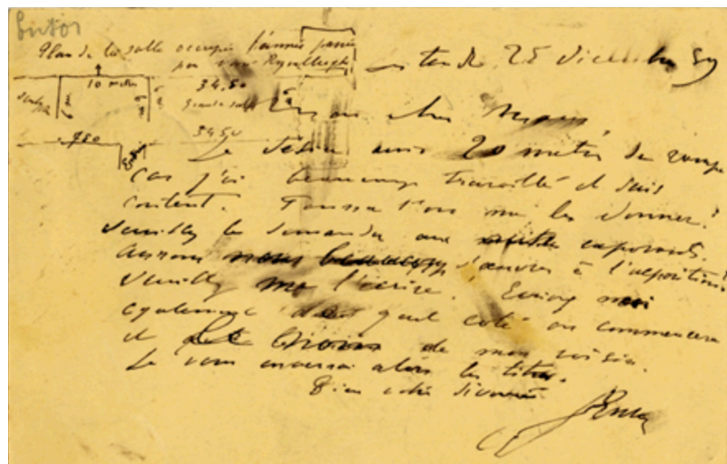 Plan de la salle occupée l'année passée
par van Rysselberghe
10 mètres
34.50
Grande salle
34.50
7.80
Ostende 25 Décembre 89
Mon cher Maus
Je désire avoir 20 mètres de rampe
car j'ai beaucoup travaillé et suis
content. me les donner?
Veuillez le demander aux exposants.
Aurons nous beaucoup d'œuvres à l'exposition?
Veuillez me l'écrire. Ecrivez moi
également quel coté on commencera
et de mon voisin.
Je vous enverrai alors les titres.
Bien votre dévoué